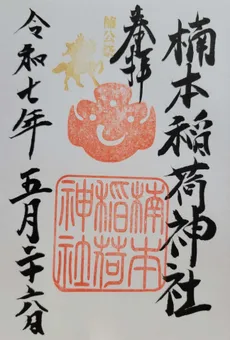 奉拝
楠本稲荷神社
楠公
楠本
稲荷
神社
令和七年五月二十六日